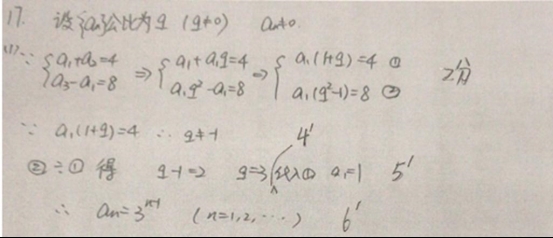 17. 设{an}公比为q (q≠0) an≠0.
(1)∵ {a₁+a₂=4 a₃-a₁=8 ⇒ {a₁+a₁q=4 a₁q²-a₁=8 ⇒ {a₁(1+q)=4 ① a₁(q²-1)=8 ② 2分
∵ a₁(1+q)=4 ∴ q≠-1 4'
②÷① 得 q-1=2 q=3 代入① a₁=1 5'
∴ an=3ⁿ⁻¹ (n=1,2,···) 6'